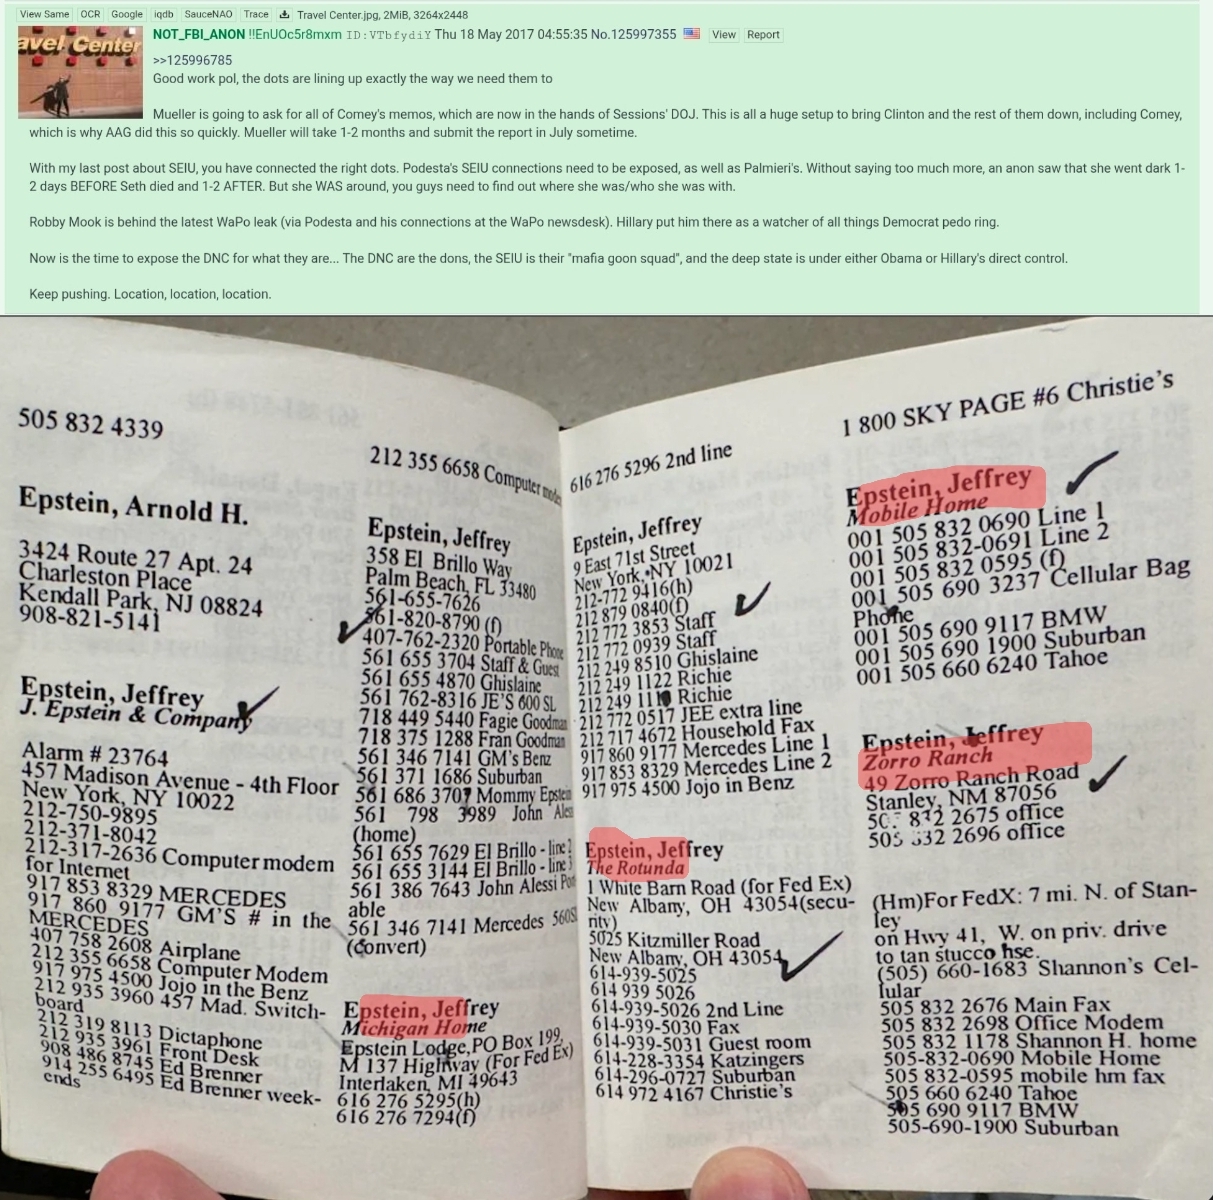 View Same OCR Google iqdb SauceNAO Trace Travel Center.jpg, 2MiB, 3264x2448
avel Center
NOT_FBI_ANON !!EnUOc5r8mxm ID:VTbfydiY Thu 18 May 2017 04:55:35 No.125997355 View Report
>>125996785
Good work pol, the dots are lining up exactly the way we need them to
Mueller is going to ask for all of Comey's memos, which are now in the hands of Sessions' DOJ. This is all a huge setup to bring Clinton and the rest of them down, including Comey,
which is why AAG did this so quickly. Mueller will take 1-2 months and submit the report in July sometime.
With my last post about SEIU, you have connected the right dots. Podesta's SEIU connections need to be exposed, as well as Palmieri's. Without saying too much more, an anon saw that she went dark 1-
2 days BEFORE Seth died and 1-2 AFTER. But she WAS around, you guys need to find out where she was/who she was with.
Robby Mook is behind the latest WaPo leak (via Podesta and his connections at the WaPo newsdesk). Hillary put him there as a watcher of all things Democrat pedo ring.
Now is the time to expose the DNC for what they are... The DNC are the dons, the SEIU is their "mafia goon squad", and the deep state is under either Obama or Hillary's direct control.
Keep pushing. Location, location, location.
505 832 4339
Epstein, Arnold H.
3424 Route 27 Apt. 24
Charleston Place
Kendall Park, NJ 08824
908-821-5141
Epstein, Jeffrey
J. Epstein & Company
Alarm # 23764
457 Madison Avenue - 4th Floor
New York, NY 10022
212-750-9895
212-371-8042
212-317-2636 Computer modem
for Internet
917 853 8329 MERCEDES
917 860 9177 GM'S # in the
MERCEDES
407 758 2608 Airplane
212 355 6658 Computer Modem
917 975 4500 Jojo in the Benz
212 935 3960 457 Mad. Switch-
board
212 319 8113 Dictaphone
212 935 3961 Front Desk
908 486 8745 Ed Brenner
914 255 6495 Ed Brenner week-
ends
212 355 6658 Computer
Epstein, Jeffrey
358 El Brillo Way
Palm Beach, FL 33480
561-655-7626
561-820-8790 (f)
407-762-2320 Portable Phone
561 655 3704 Staff & Guest
561 655 4870 Ghislaine
561 762-8316 JE'S 600 SL
718 449 5440 Fagie Goodman
718 375 1288 Fran Goodman
561 346 7141 GM's Benz
561 371 1686 Suburban
561 686 3707 Mommy Epstein
561 798 3989 John
(home)
561 655 7629 El Brillo - line
561 655 3144 El Brillo - line
561 386 7643 John Alessi Port
able
561 346 7141 Mercedes
(convert)
Epstein, Jeffrey
Michigan Home
Epstein Lodge,PO Box 199,
M 137 Highway (For Fed Ex)
Interlaken, MI 49643
616 276 5295(h)
616 276 7294(f)
616 276 5296 2nd line
Epstein, Jeffrey
9 East 71st Street
New York, NY 10021
212-772 9416(h)
212 879 0840(f)
212 772 3853 Staff
212 772 0939 Staff
212 249 8510 Ghislaine
212 249 1122 Richie
212 249 Richie
212 772 0517 JEE extra line
212 717 4672 Household Fax
917 860 9177 Mercedes Line 1
917 853 8329 Mercedes Line 2
917 975 4500 Jojo in Benz
Epstein, Jeffrey
The Rotunda
1 White Barn Road (for Fed Ex)
New Albany, OH 43054(secu-
rity)
5025 Kitzmiller Road
New Albany, OH 43054
614-939-5025
614 939 5026
614-939-5026 2nd Line
614-939-5030 Fax
614-939-5031 Guest room
614-228-3354 Katzingers
614-296-0727 Suburban
614 972 4167 Christie's
1 800 SKY PAGE #6 Christie's
Epstein, Jeffrey
Mobile Home
001 505 832 0690 Line 1
001 505 832-0691 Line 2
001 505 832 0595 (f)
001 505 690 3237 Cellular Bag
Phone
001 505 690 9117 BMW
001 505 690 1900 Suburban
001 505 660 6240 Tahoe
Epstein, Jeffrey
Zorro Ranch
49 Zorro Ranch Road
Stanley, NM 87056
832 2675 office
505 2696 office
(Hm)For FedX: 7 mi. N. of Stan-
ley
on Hwy 41, W. on priv. drive
to tan stucco hse.
(505) 660-1683 Shannon's Cel-
lular
505 832 2676 Main Fax
505 832 2698 Office Modem
505 832 1178 Shannon H. home
505-832-0690 Mobile Home
505 832-0595 mobile hm fax
505 660 6240 Tahoe
505 690 9117 BMW
505-690-1900 Suburban